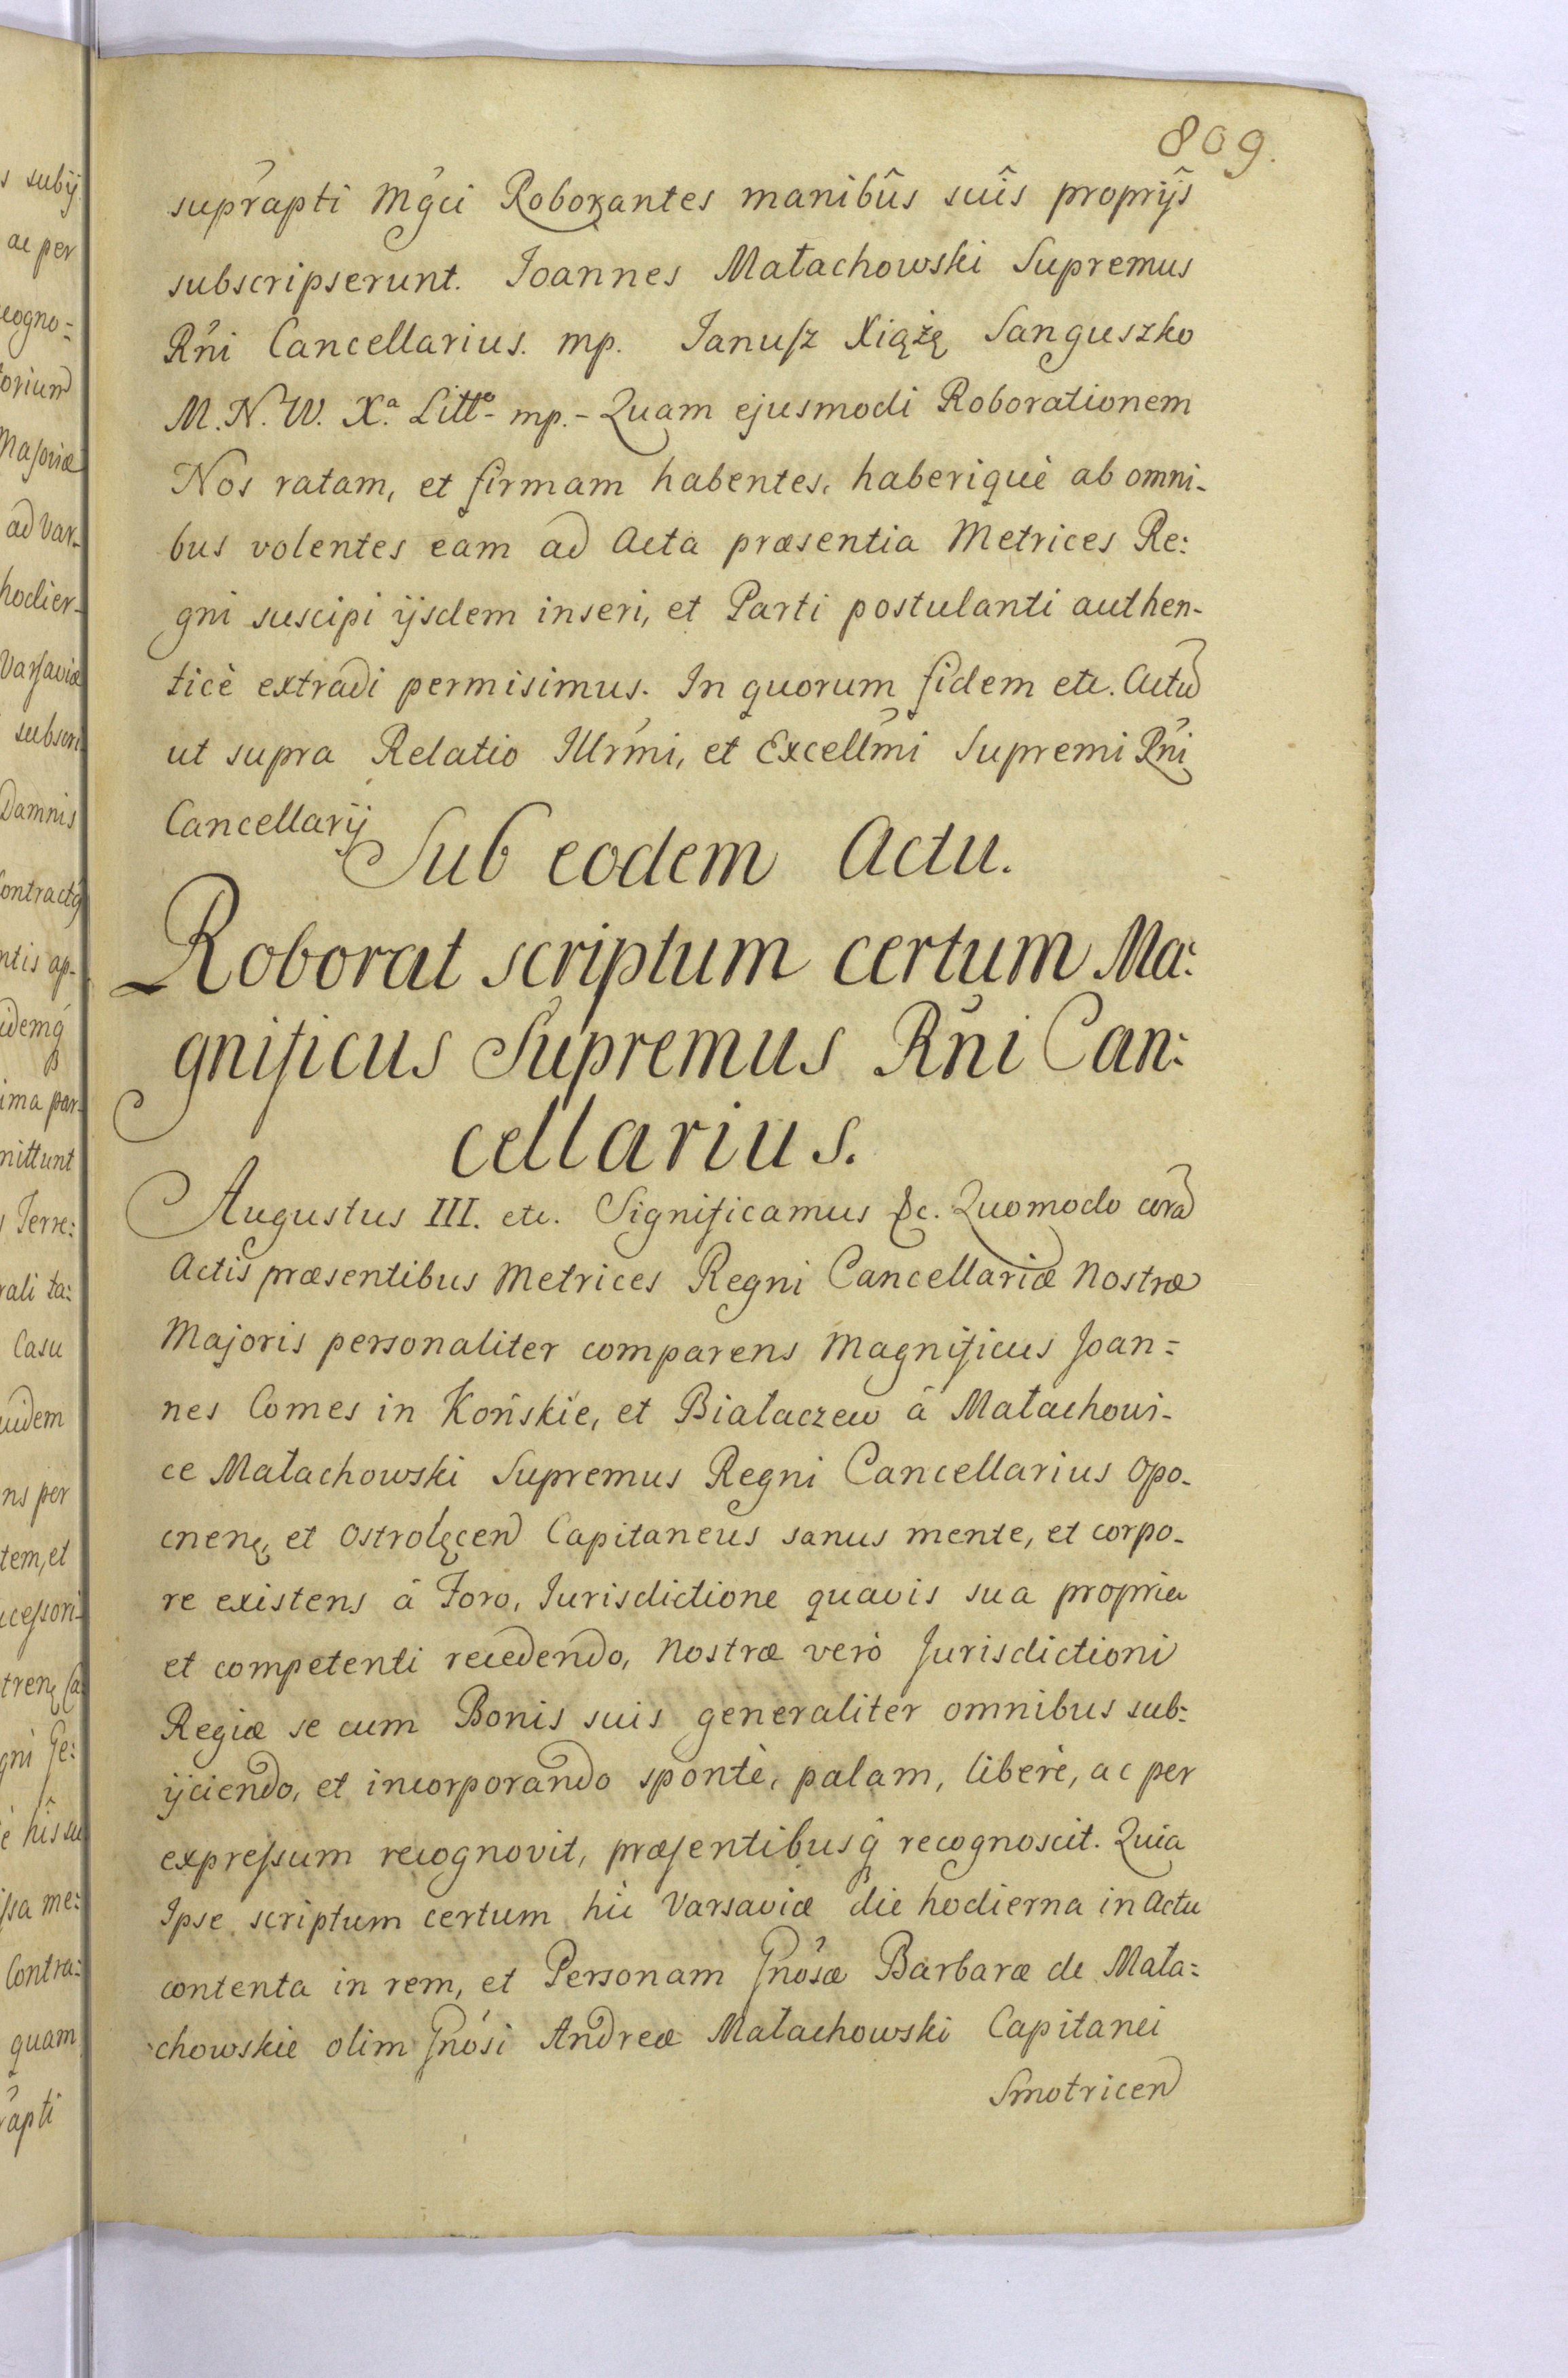 809.
supr̃apti Mg̃ci Roborantes manibûs suîs proprijs̃
subscripserunt. Joannes Małachowski Supremus
Rñi Cancellarius. mp. Janusz Xiążę Sanguszko
M. N. W. Xª. Littº- mp. - Quam ejusmodi Roborationem
Nos ratam, et firmam habentes, haberiquè ab omni-
bus volentes eam ad Acta præsentia Metrices Re:
gni suscipi ijsdem inseri, et Parti postulanti authen-
ticè extradi permisimus. In quorum fidem etc. Actũ
ut supra Relatio Illr̃mi, et Excellm̃i Supremi Rñi
Cancellarij
Sub eodem Actu.
Roborat scriptum certum Ma:
gnificus Supremus Rñi Can:
cellarius.
Augustus III. etc. Significamus &c. Quomodo corã
Actis præsentibus Metrices Regni Cancellariæ Nostræ
Majoris personaliter comparens Magnificus Joan=
nes Comes in Końskie, et Białaczew â Małachowi-
ce Małachowski Supremus Regni Cancellarius Opo-
cneñ, et Ostrolęcen̄ Capitaneus sanus mente, et corpo-
re existens â Foro, Jurisdictione quavis sua propria
et competenti recedendo, Nostræ verò Jurisdictioni
Regiæ se cum Bonis suis generaliter omnibus sub:
ijciendo, et incorporando spontè, palam, liberè, ac per
expressum recognovit, præsentibusq̃ recognoscit. Quia
Ipse scriptum certum hic Varsaviæ die hodierna in Actu
contenta in rem, et Personam Gñosæ Barbaræ de Mała=
chowskie olim Gñosi Andreæ Małachowski Capitanei
Smotricen̄
s subij
ac per
cogno=
torium
Masoviæ
ad Var-
hodier-
Varsaviæ
subscri
Damnis
Contractq̃
ntis ap-
idemq̃
ima par-
mittunt
s Terre:
rali ta:
Casu
uidem
ns per
tem, et
ucessori-
treñ Ca
gni Ge:
è hîs su
ssa me:
Contra:
quam
r̃apti